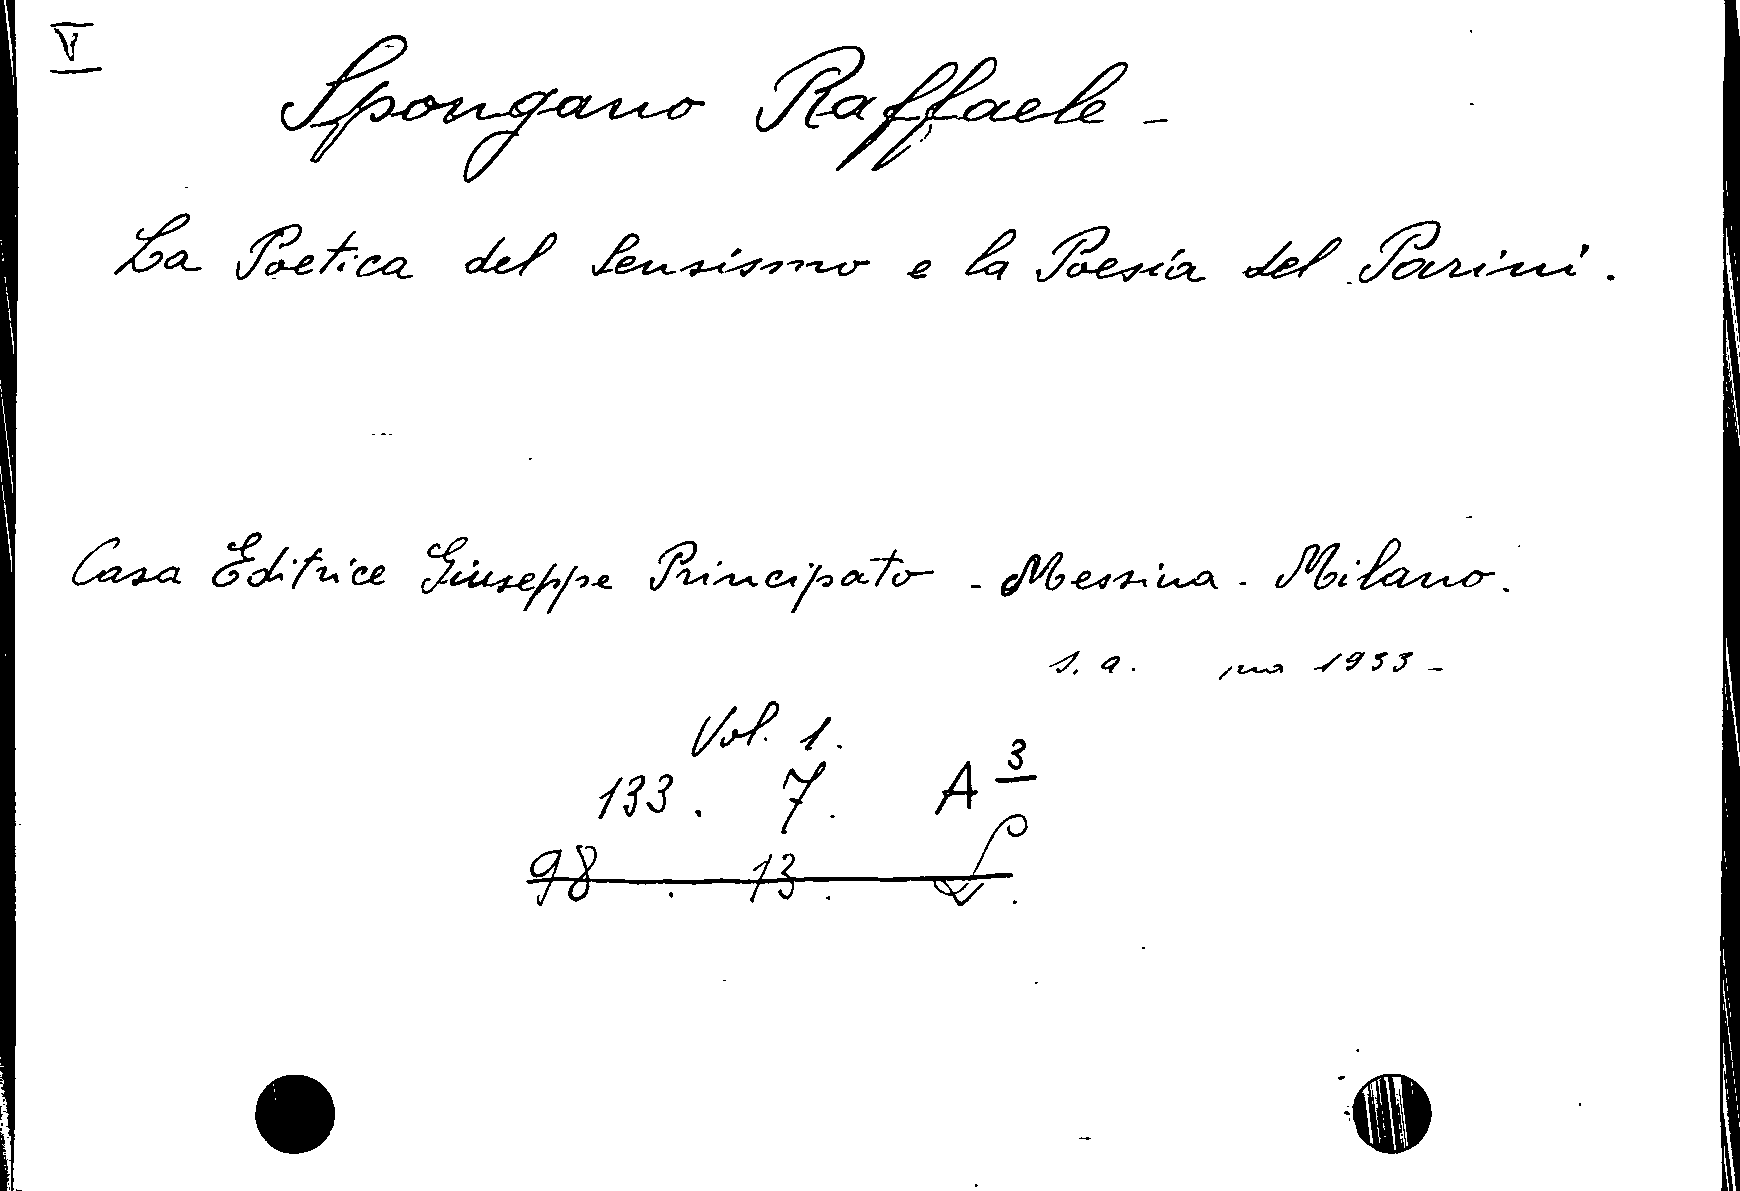 V
Spongano Raffaele -
La Poetica del Sensismo e la Poesia del Parini.
Casa Editrice Giuseppe Principato - Messina - Milano.
s. a. ma 1933 -
Vol. 1.
133. 7. A 3
98. 13.